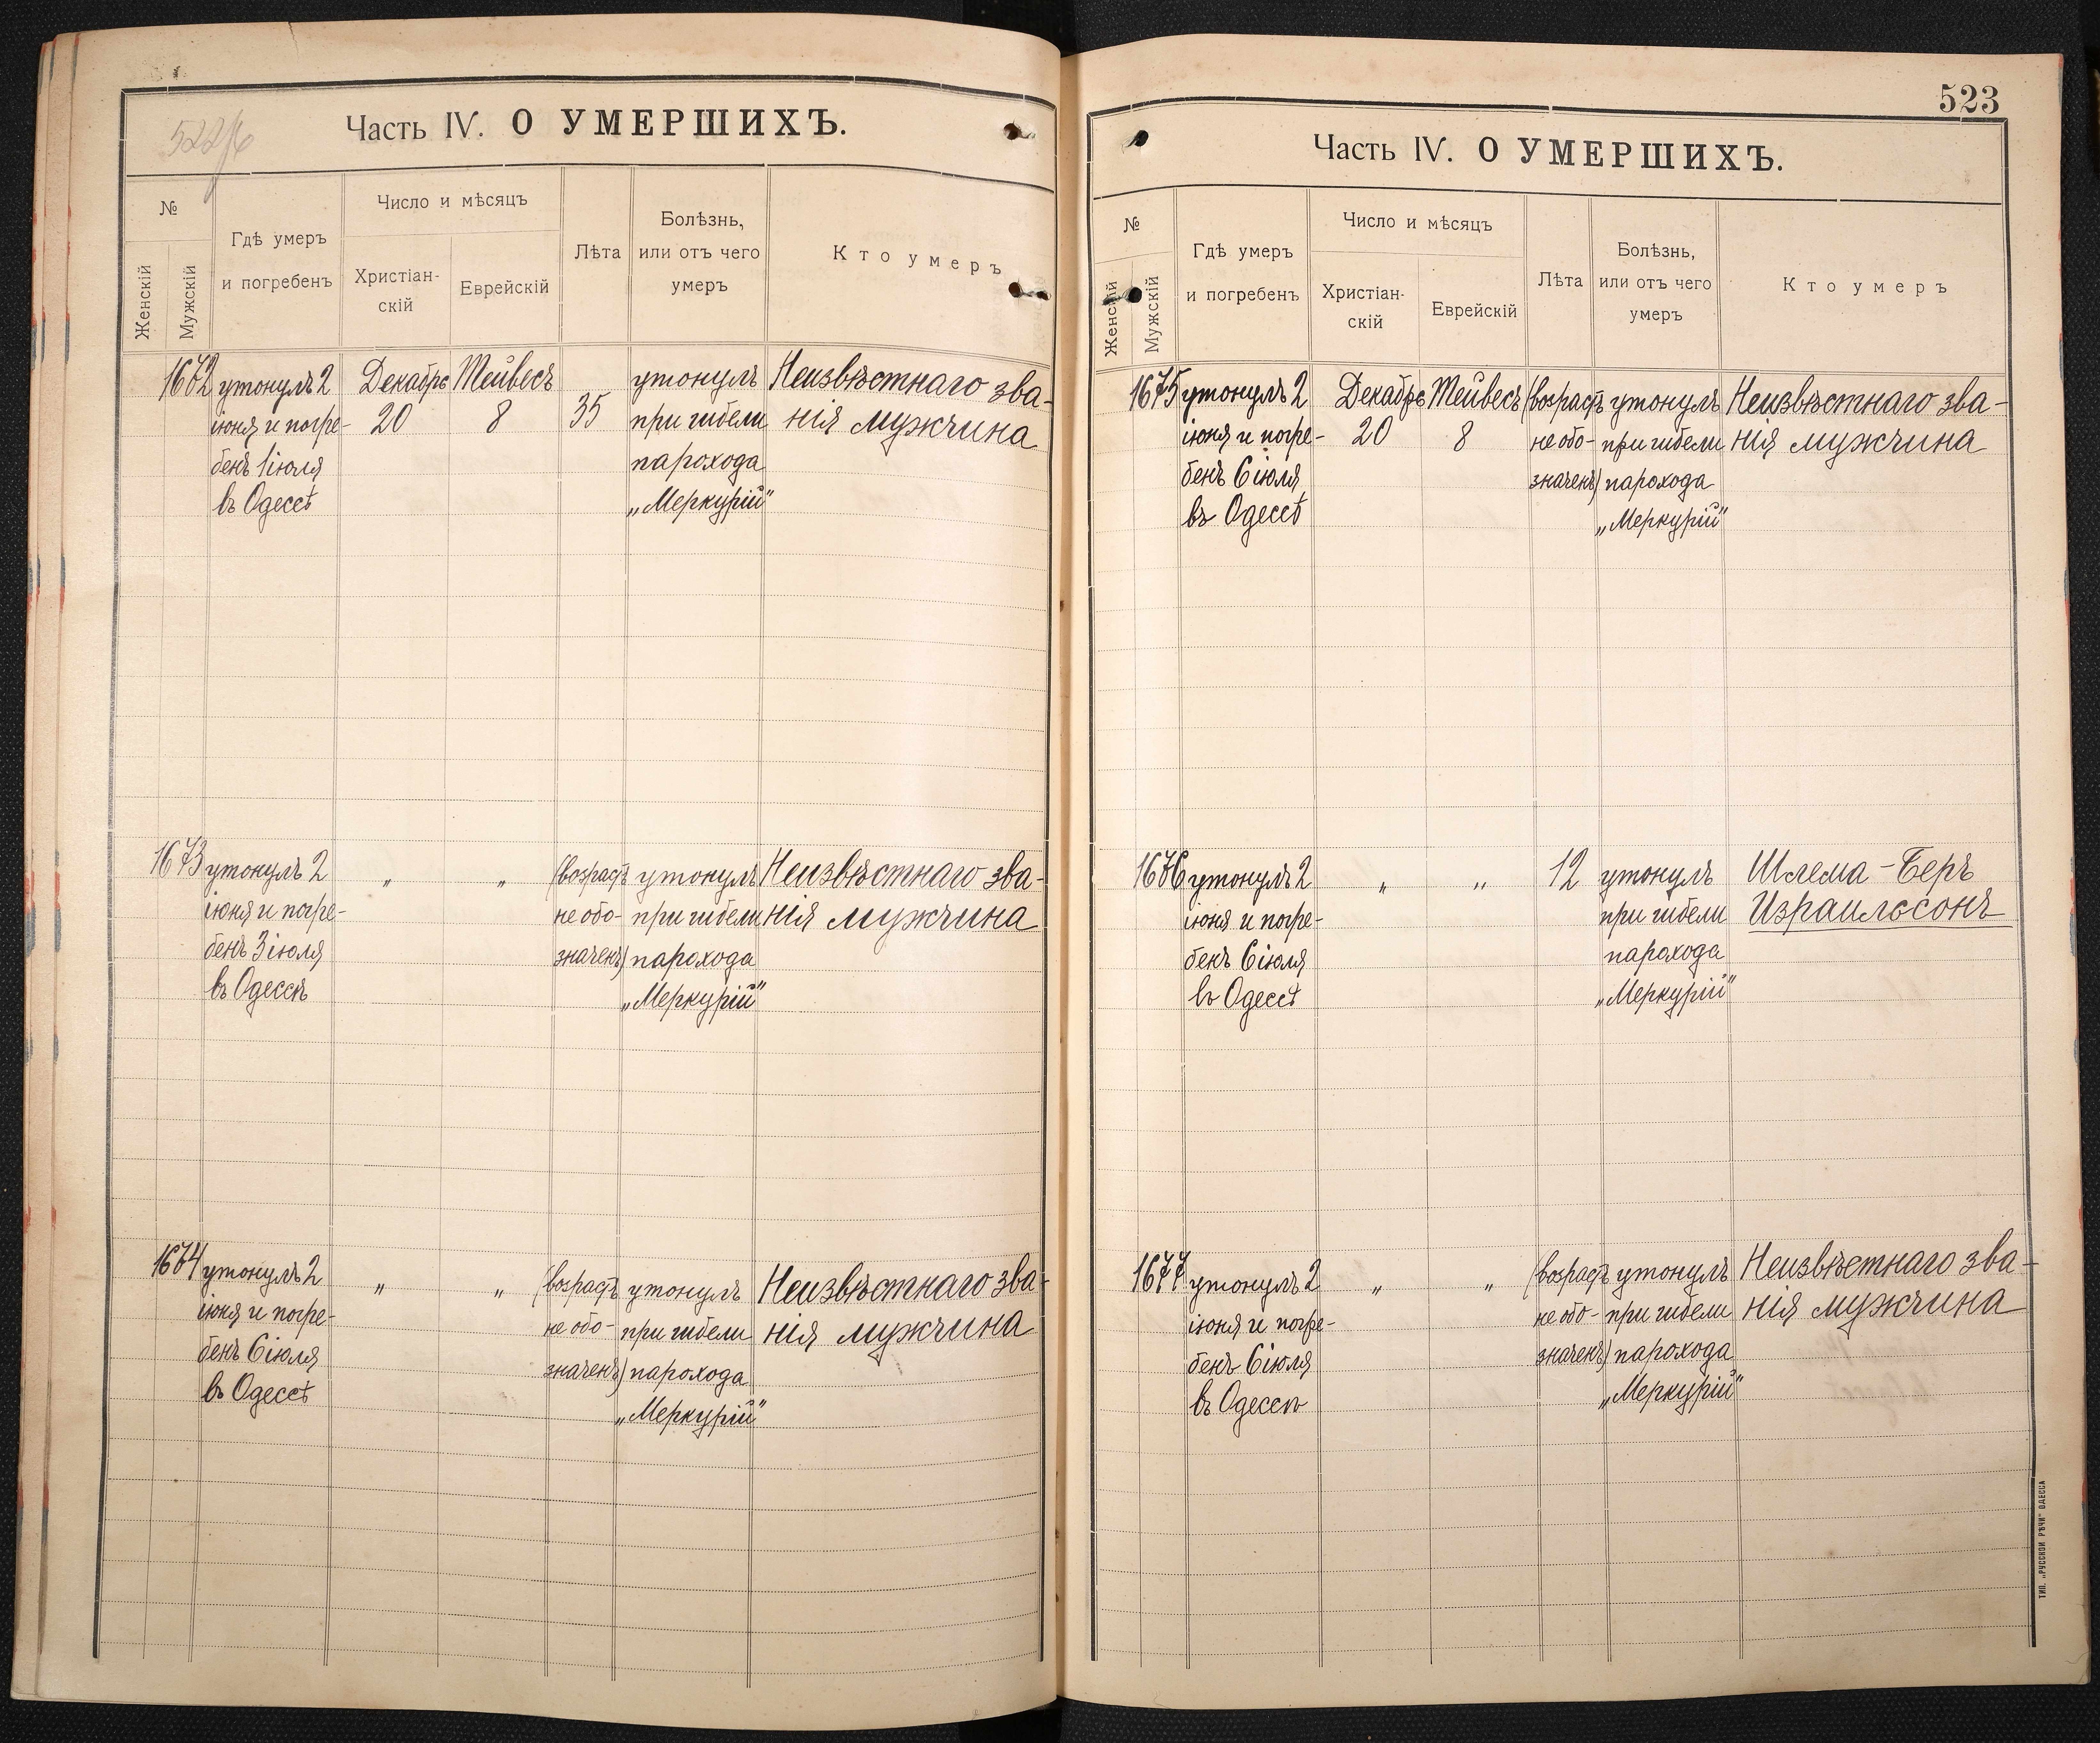 Часть IV. О УМЕРШИХЪ.
№
Женскій
Мужскій
Гдѣ умеръ
и погребенъ
Число и мѣсяцъ
Христіан-
скій
Еврейскій
Лѣта
Болѣзнь,
или отъ чего
умеръ
Кто умеръ
1672
утонулъ 2
іюня и погре-
бенъ 1 іюля
въ Одессѣ
Декабрь
20
Тейвесъ
8
35
утонулъ
при гибели
парохода
„Меркурій"
Неизвѣстнаго зва-
нія мужчина
1673
утонулъ 2
іюня и погре-
бенъ 3 іюля
въ Одессѣ
„
„
(возрастъ
не обо-
значенъ)
утонулъ
при гибели
парохода
„Меркурій"
Неизвѣстнаго зва-
нія мужчина
1674
утонулъ 2
іюня и погре-
бенъ 6 іюля
въ Одессѣ
„
„
(возрастъ
не обо-
значенъ)
утонулъ
при гибели
парохода
„Меркурій"
Неизвѣстнаго зва-
нія мужчина
523
Часть IV. О УМЕРШИХЪ.
№
Женскій
Мужскій
Гдѣ умеръ
и погребенъ
Число и мѣсяцъ
Христіан-
скій
Еврейскій
Лѣта
Болѣзнь,
или отъ чего
умеръ
Кто умеръ
1675
утонулъ 2
іюня и погре-
бенъ 6 іюля
въ Одессѣ
Декабрь
20
Тейвесъ
8
(возрастъ
не обо-
значенъ)
утонулъ
при гибели
парохода
„Меркурій"
Неизвѣстнаго зва-
нія мужчина
1676
утонулъ 2
іюня и погре-
бенъ 6 іюля
въ Одессѣ
„
„
12
утонулъ
при гибели
парохода
„Меркурій"
Шлема-Беръ
Израильсонъ
1677
утонулъ 2
іюня и погре-
бенъ 6 іюля
въ Одессѣ
„
„
(возрастъ
не обо-
значенъ)
утонулъ
при гибели
парохода
„Меркурій"
Неизвѣстнаго зва-
нія мужчина
ТИП. „РУССКОЙ РѢЧИ" ОДЕССА